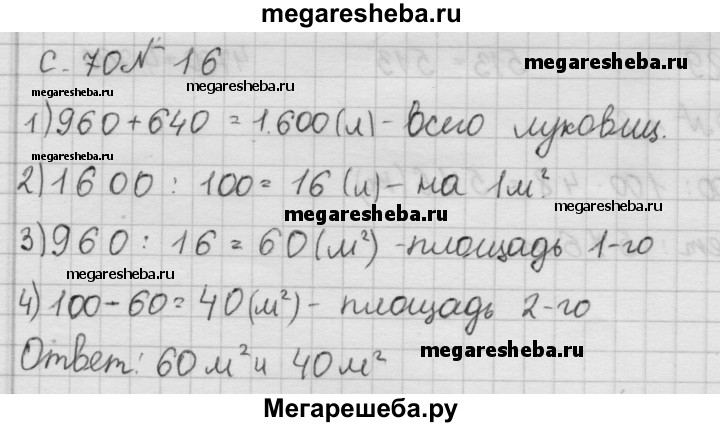 megaresheba.ru
с. 70 № 16
megaresheba.ru
megaresheba.ru
megaresheba.ru
1) 960 + 640 = 1600 (л) - всего луковиц.
2) 1600 : 100 = 16 (л) - на 1 м².
megaresheba.ru
megaresheba.ru
3) 960 : 16 = 60 (м²) - площадь 1-го
megaresheba.ru
4) 100 - 60 = 40 (м²) - площадь 2-го
Ответ: 60 м² и 40 м²
megaresheba.ru
Мегарешеба.ру